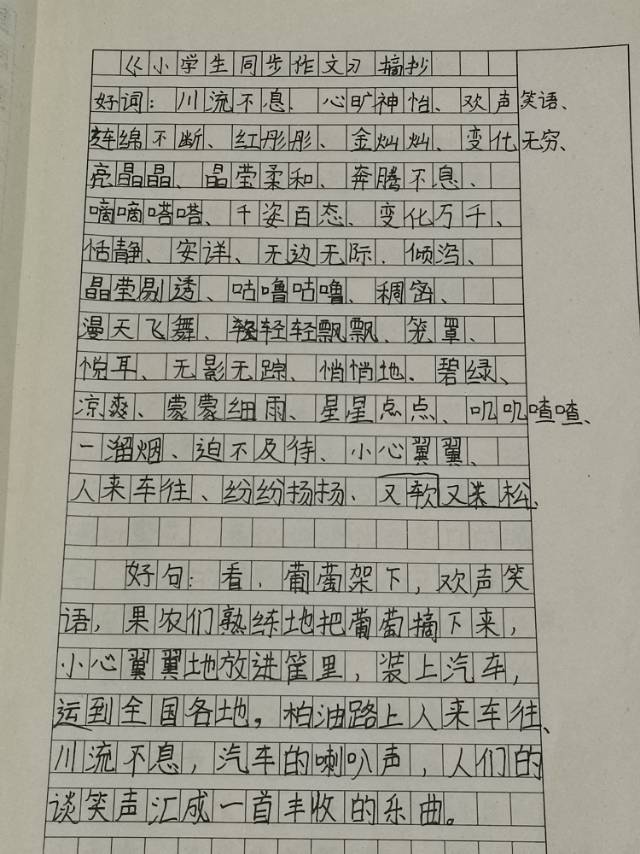 《小学生同步作文》摘抄
好词：川流不息、心旷神怡、欢声笑语、
连绵不断、红彤彤、金灿灿、变化无穷、
亮晶晶、晶莹柔和、奔腾不息、
嘀嘀嗒嗒、千姿百态、变化万千、
恬静、安详、无边无际、倾泻、
晶莹剔透、咕噜咕噜、稠密、
漫天飞舞、轻轻飘飘、笼罩、
悦耳、无影无踪、悄悄地、碧绿、
凉爽、蒙蒙细雨、星星点点、叽叽喳喳、
一溜烟、迫不及待、小心翼翼、
人来车往、纷纷扬扬、又软又松、
好句：看，葡萄架下，欢声笑
语，果农们熟练地把葡萄摘下来，
小心翼翼地放进筐里，装上汽车，
运到全国各地。柏油路上人来车往、
川流不息，汽车的喇叭声，人们的
谈笑声汇成一首丰收的乐曲。